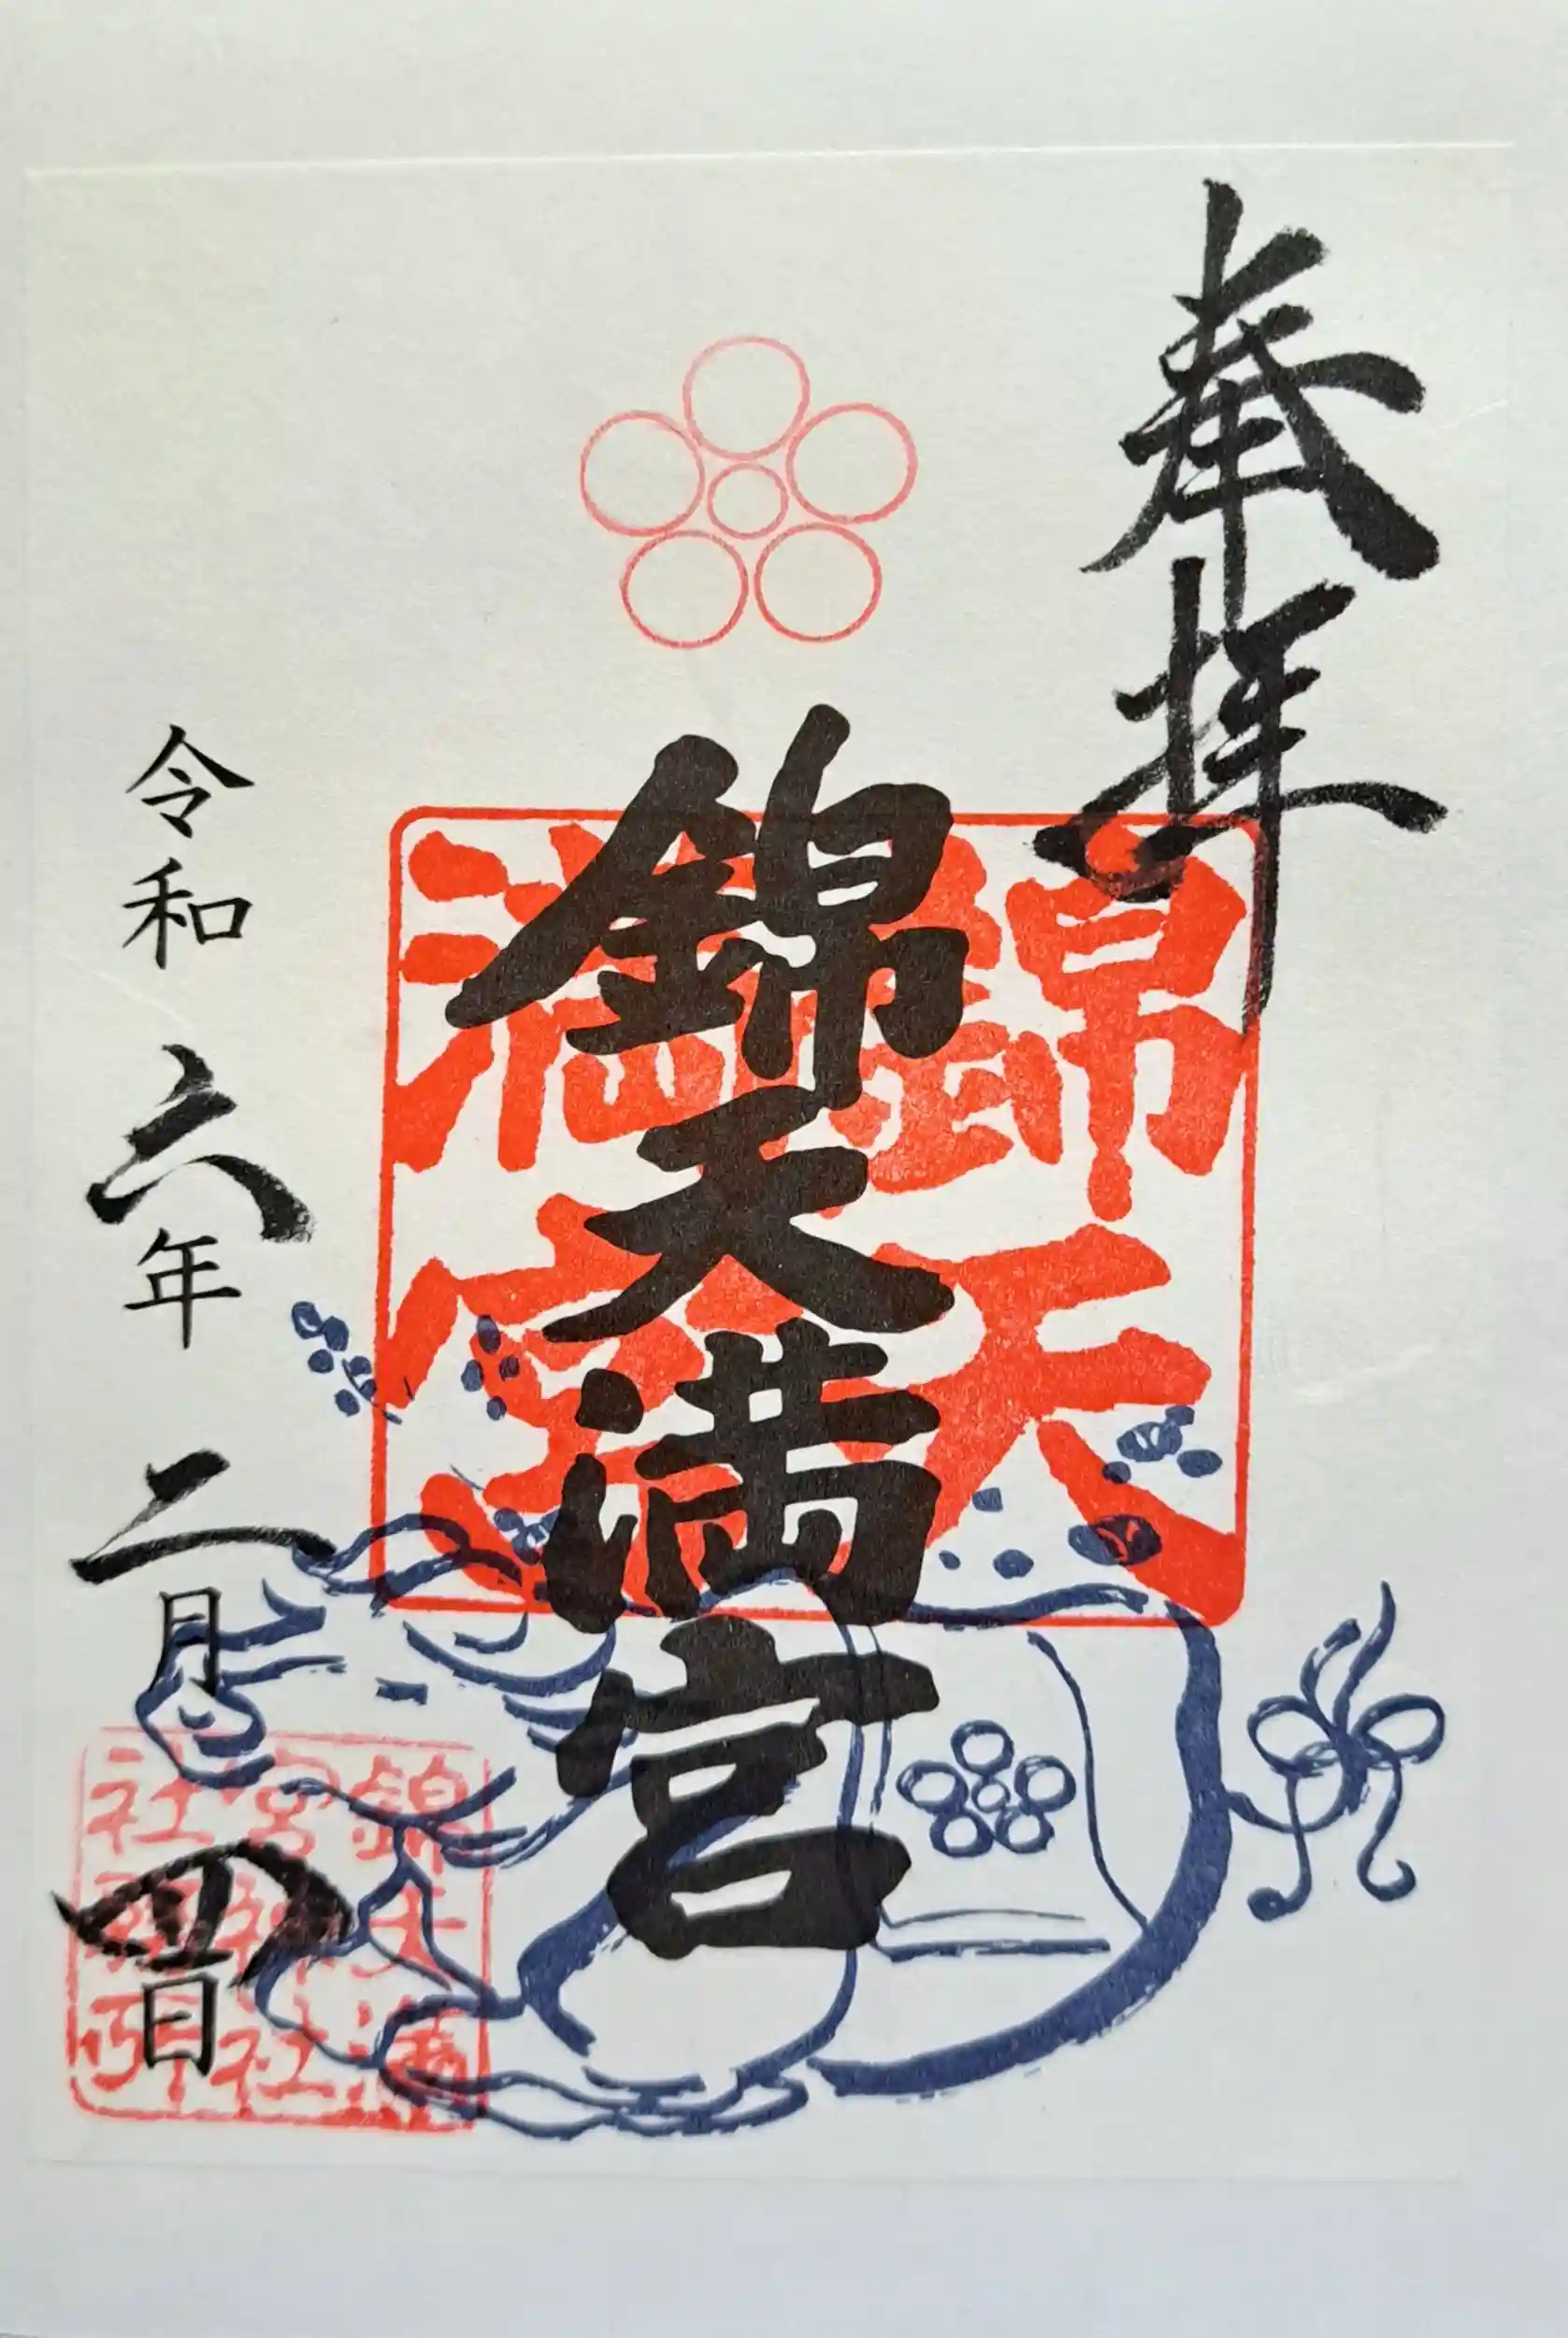 奉拝
錦天満宮
錦天
満宮
令和六年二月四日
錦天満
宮神社
社務所